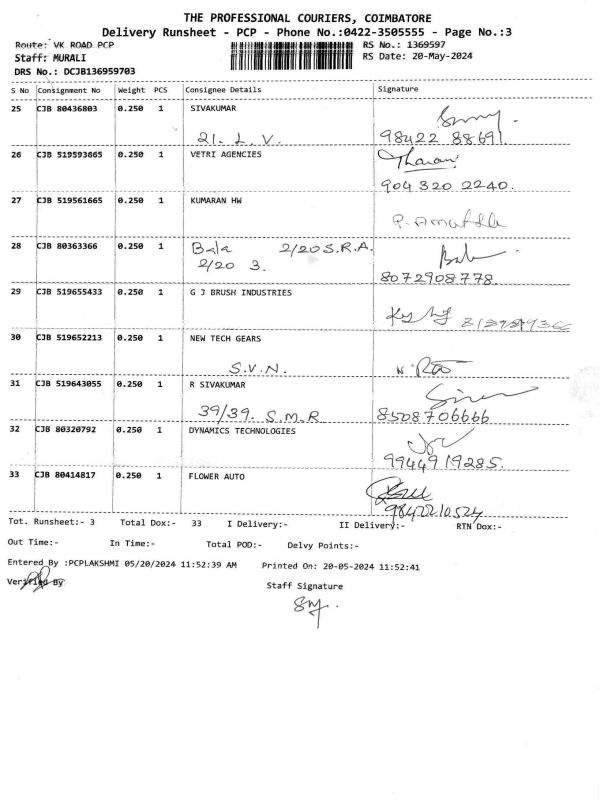 THE PROFESSIONAL COURIERS, COIMBATORE
Delivery Runsheet - PCP - Phone No.:0422-3505555 - Page No.:3
Route: VK ROAD PCP RS No.: 1369597
Staff: MURALI RS Date: 20-May-2024
DRS No.: DCJB136959703
S No Consignment No Weight PCS Consignee Details Signature
25 CJB 80436803 0.250 1 SIVAKUMAR
21. L. V. 98422 88691
26 CJB 519593665 0.250 1 VETRI AGENCIES Tharan
904 320 2240.
27 CJB 519561665 0.250 1 KUMARAN HW
28 CJB 80363366 0.250 1 Bala 2/20 S.R.A. Bala
2/20 3. 8072908778.
29 CJB 519655433 0.250 1 G J BRUSH INDUSTRIES
30 CJB 519652213 0.250 1 NEW TECH GEARS
S.V.N.
31 CJB 519643055 0.250 1 R SIVAKUMAR
39/39. S.M.R 8508706666
32 CJB 80320792 0.250 1 DYNAMICS TECHNOLOGIES
9944919285.
33 CJB 80414817 0.250 1 FLOWER AUTO
9842210524
Tot. Runsheet:- 3 Total Dox:- 33 I Delivery:- II Delivery:- RTN Dox:-
Out Time:- In Time:- Total POD:- Delvy Points:-
Entered By :PCPLAKSHMI 05/20/2024 11:52:39 AM Printed On: 20-05-2024 11:52:41
Verified By Staff Signature